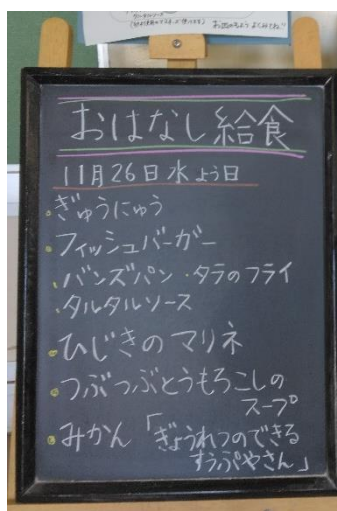 おはなし給食
11月26日水よう日
・ぎゅうにゅう
・フィッシュバーガー
、バンズパン ・タラのフライ
、タルタルソース
・ひじきのマリネ
・つぶつぶとうもろこしの
スープ
・みかん「ぎょうれつのできる
すうぷやさん」